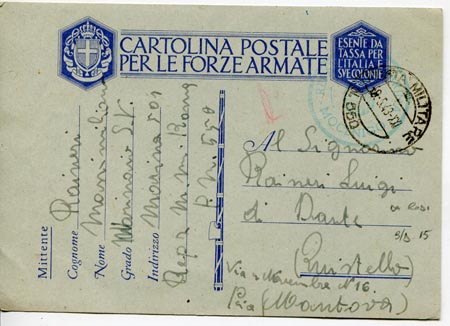 CARTOLINA POSTALE
PER LE FORZE ARMATE
ESENTE DA
TASSA PER
L'ITALIA E
SVE COLONIE
POSTA MILITARE
N. 550
Mittente
Cognome Raineri
Nome Massimiliano
Grado Marinaio S.V.
Indirizzo Marina 501
P.M. 550
Al Signor
Raineri Luigi
di Dante
(Quistello)
Via 4 Novembre N° 16.
(Mantova)